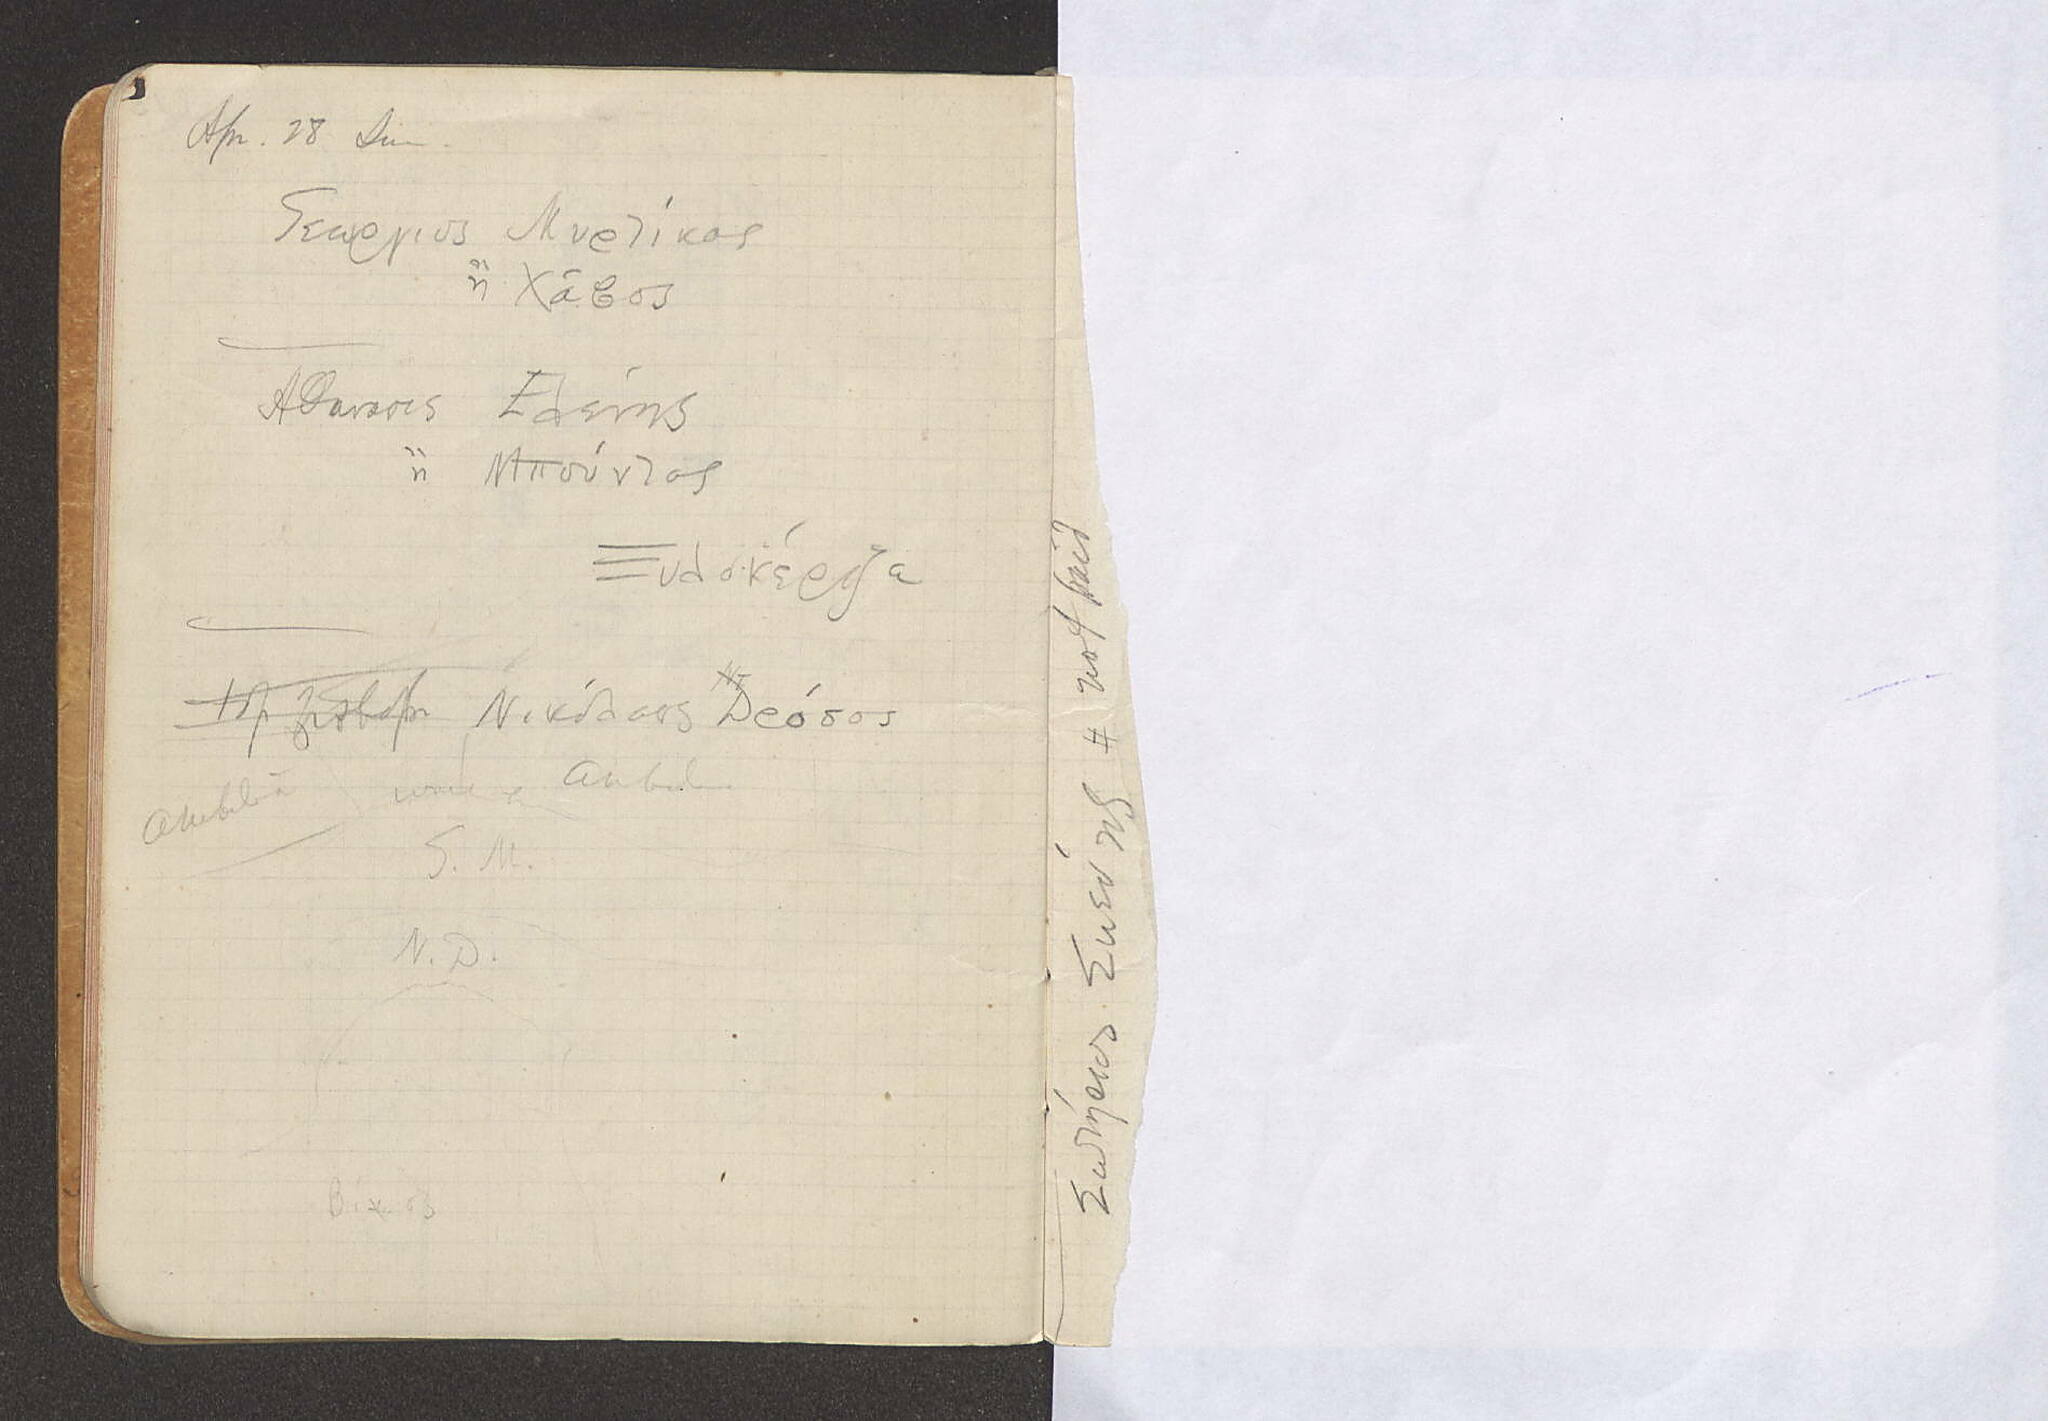 Apr. 28 Sun.
Γεωργιος Μυρτίκας
ἢ Χάβος
Αθανασις Ελένης
ἢ Μπούντας
Ξυλοκέρζα
Νικόλαος Δρόσος
G. M.
N. D.
Βίκος
Σωτήριος Σιμένης # not paid